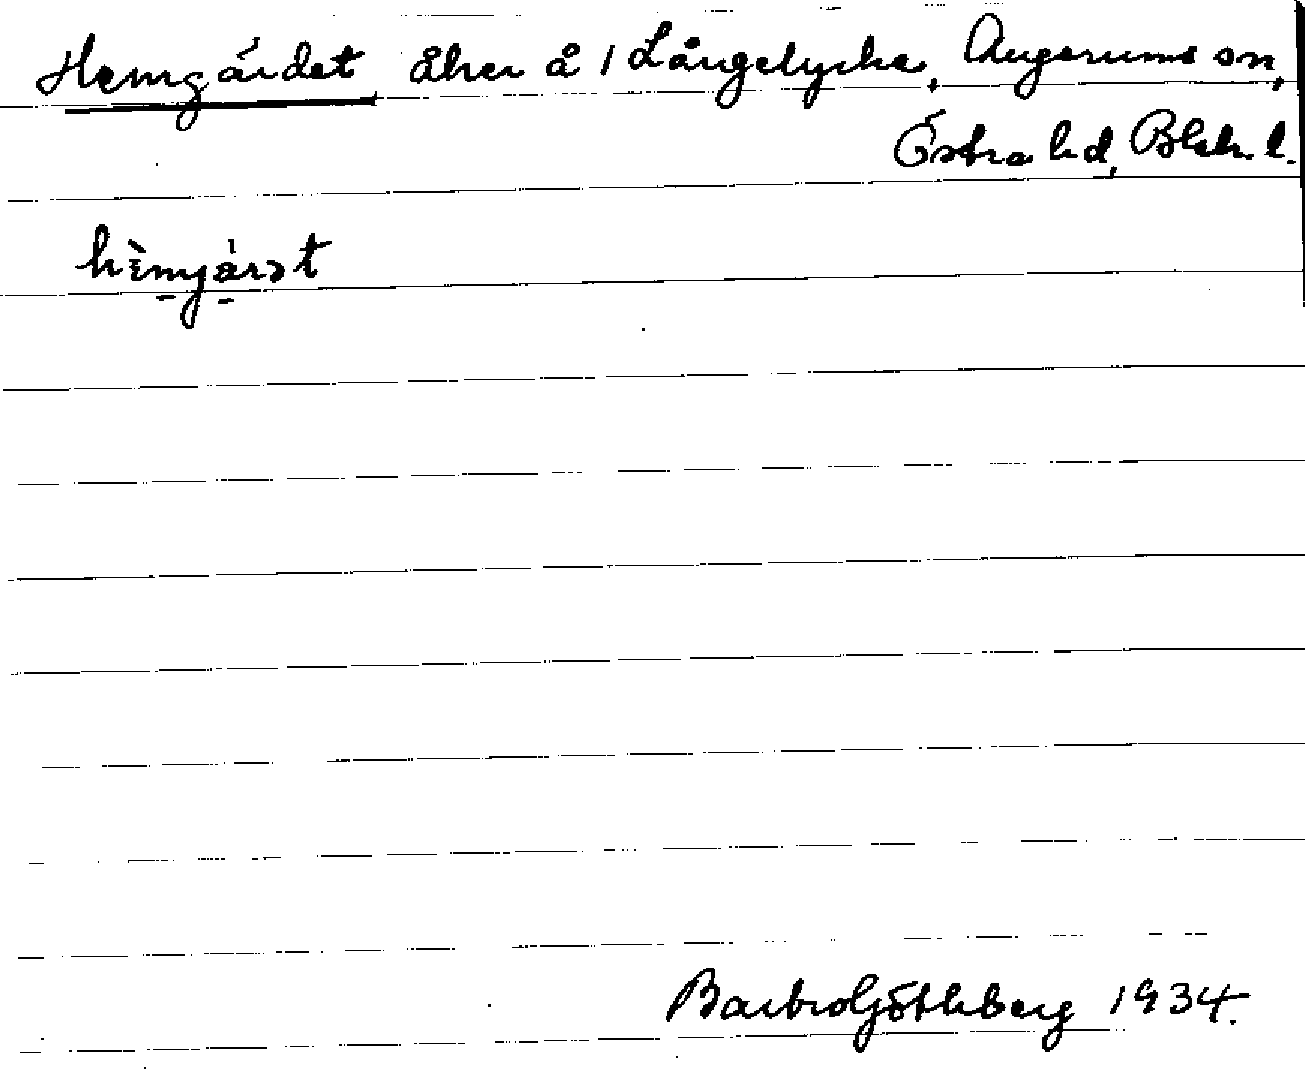 Hemgärdet åker å 1 Långelycke, Augerums sn,
Östra hd, Blek. l.
hèmjárət
Barbro Götleberg 1934.